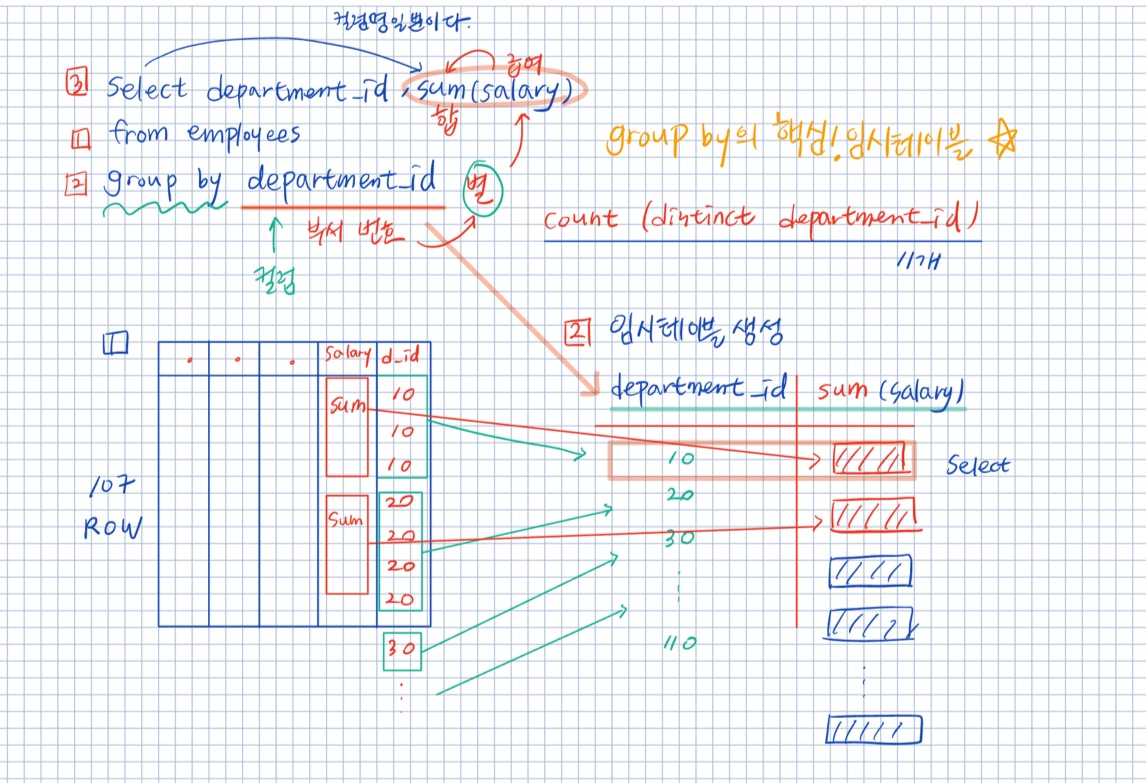 컬럼명일뿐이다.
급여
3 Select department_id, sum(salary)
합
1 from employees
2 group by department_id 별
부서 번호
컬럼
group by의 핵심! 임시테이블 ☆
count (distinct department_id)
11개
1
2 임시테이블 생성
. . . salary d_id
department_id sum (salary)
sum
10
10
10
107
ROW
sum
20
20
20
20
30
⋮
10 Select
20
30
⋮
110
⋮